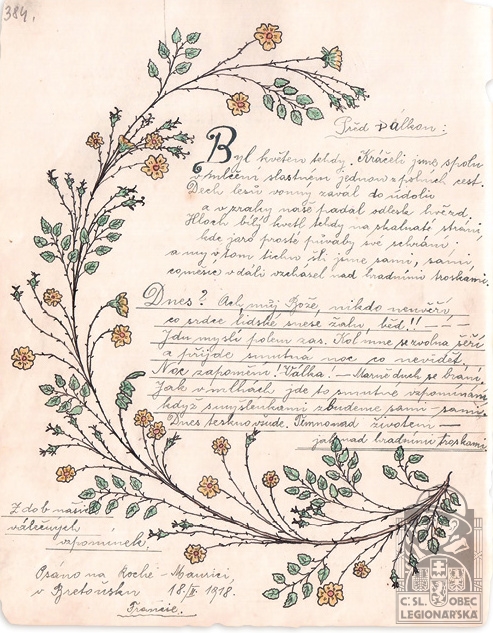 384.
Před válkou:
Byl květen tehdy. Kráčeli jsme spolu
v mlčení šťastném jednou z polních cest.
Dech lesů vonný zavál do údolí
a v zraky naše padal odlesk hvězd.
Hloh bílý kvetl tehdy na skalnaté stráni,
kde jaro prosté půvaby své schrání
a my v tom tichu šli jsme sami, sami,
co měsíc v dáli vzcházel nad hradními troskami.
Dnes? Ach, můj Bože, nikdo neuvěří,
co srdce lidské snese žalu, běd!!
Jdu myslí polem zas. Kol mne se zvolna šeří
a přijde smutná noc co nevidět.
Noc zapomění! Válka! – Marně duch se brání,
Jak v mlhách, jde to smutné vzpomínání
když s myšlenkami zbudeme sami – sami
Dnes teskno všude. Temno nad životem –
jak nad hradními troskami.
Z dob našich
válečných
vzpomínek.
Psáno na Roche-Maurici,
v Bretoňsku 18./II. 1918.
Francie.
Č.SL. OBEC
LEGIONÁŘSKÁ